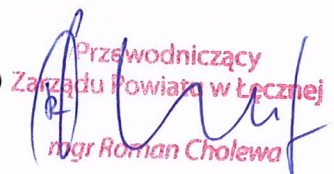 Przewodniczący
Zarządu Powiatu w Łęcznej
mgr Roman Cholewa